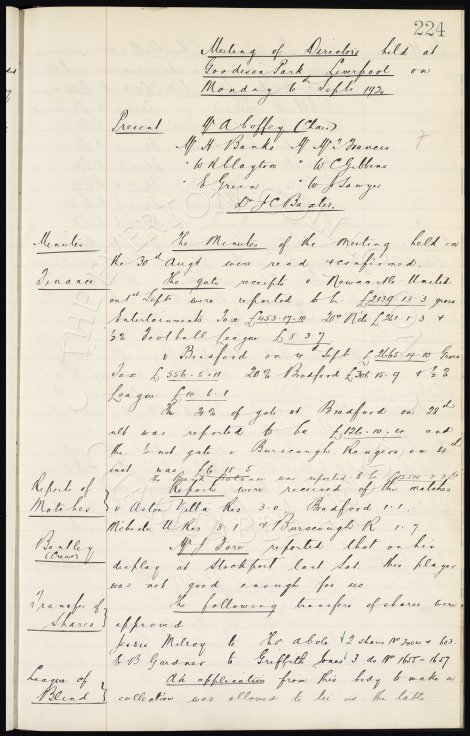 224
Meeting of Directors held at
Goodison Park Liverpool on
Monday 6th Septr 1920
Present Mr A Coffey (Chair)
Mr H Banks Mr Francis
" W R Clayton " W C Gibbins
" E Green " W J Sawyer
Dr J C Baxter.
Minutes The Minutes of the Meeting held on
the 30th Augt were read & confirmed.
Finance The gate receipts v Newcastle United
on 1st Septr were reported to be £2139.13.3 gross
Entertainments Tax £453.17.10 20% N'cle £261.1.3 &
½% Football League £8.3.7
v Bradford on 4th Sept £2665.19.10 Gross
Tax £556.5.11 20% Bradford £306.15.9 & ½%
League £10.6.1
The 20% of gate at Bradford on 28th
ult was reported to be £126.10.10 and
the ½ net gate v Burscough Rangers on 4th
inst was £6.18.5
the Bank balance was reported to be
Reports of Matches } Reports were received of the matches
v Aston Villa Res 3.0 Bradford 1.1.
Mchester U Res 3.1 & Burscough R 1.7
Bentley (Crewe) Mr J reported that on his
display at Stockport last Sat. this player
was not good enough for us
Transfer of Shares } The following transfers of shares were
approved
Jessie Milroy to Thos 2 shares Nos & 603.
E B Gardner to Griffith Jones 3 do Nos 1655-1657
League of Blind } An application from this body to make a
collection was allowed to lie on the table